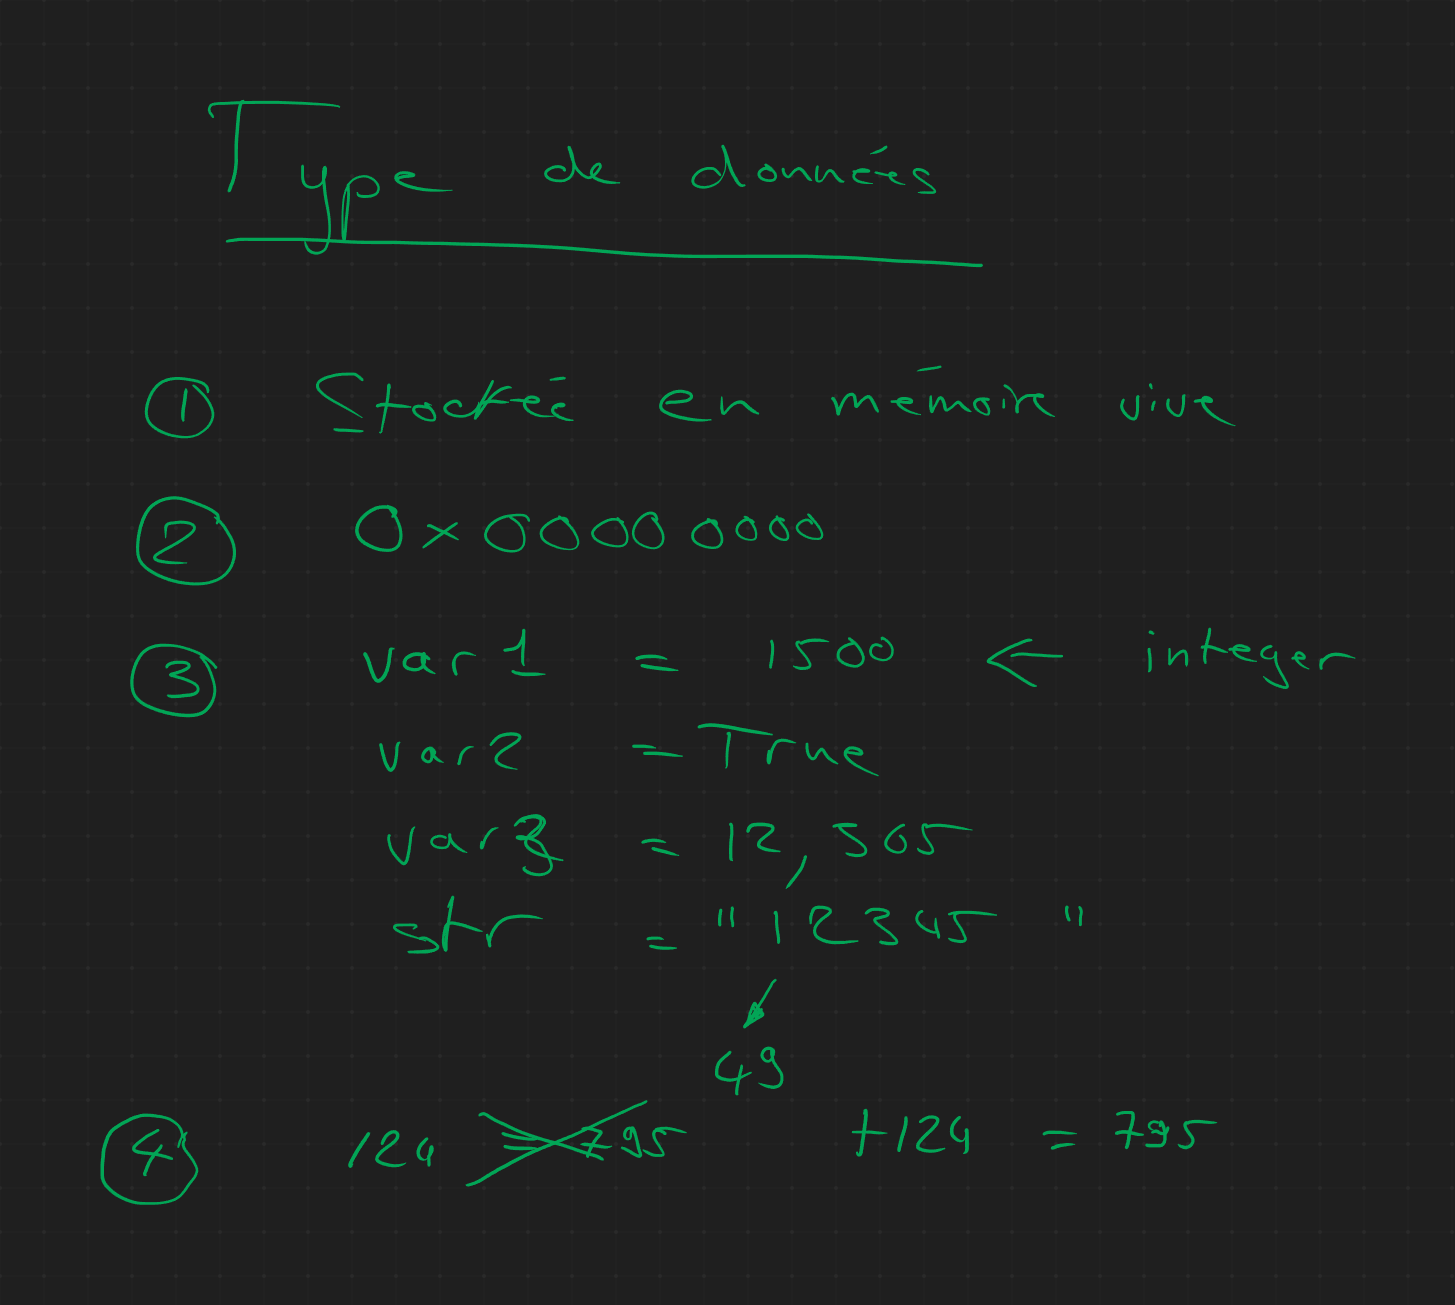 Type de données
① Stockée en mémoire vive
② 0x00000000
③ var1 = 1500 ← integer
var2 = True
var3 = 12,565
str = "12345"
49
④ 124 = 795 +124 = 795